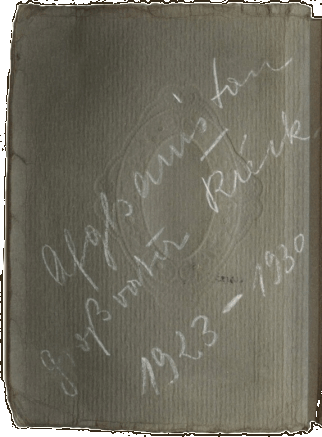 Afghanistan
Großvater Rieck
1923 – 1930